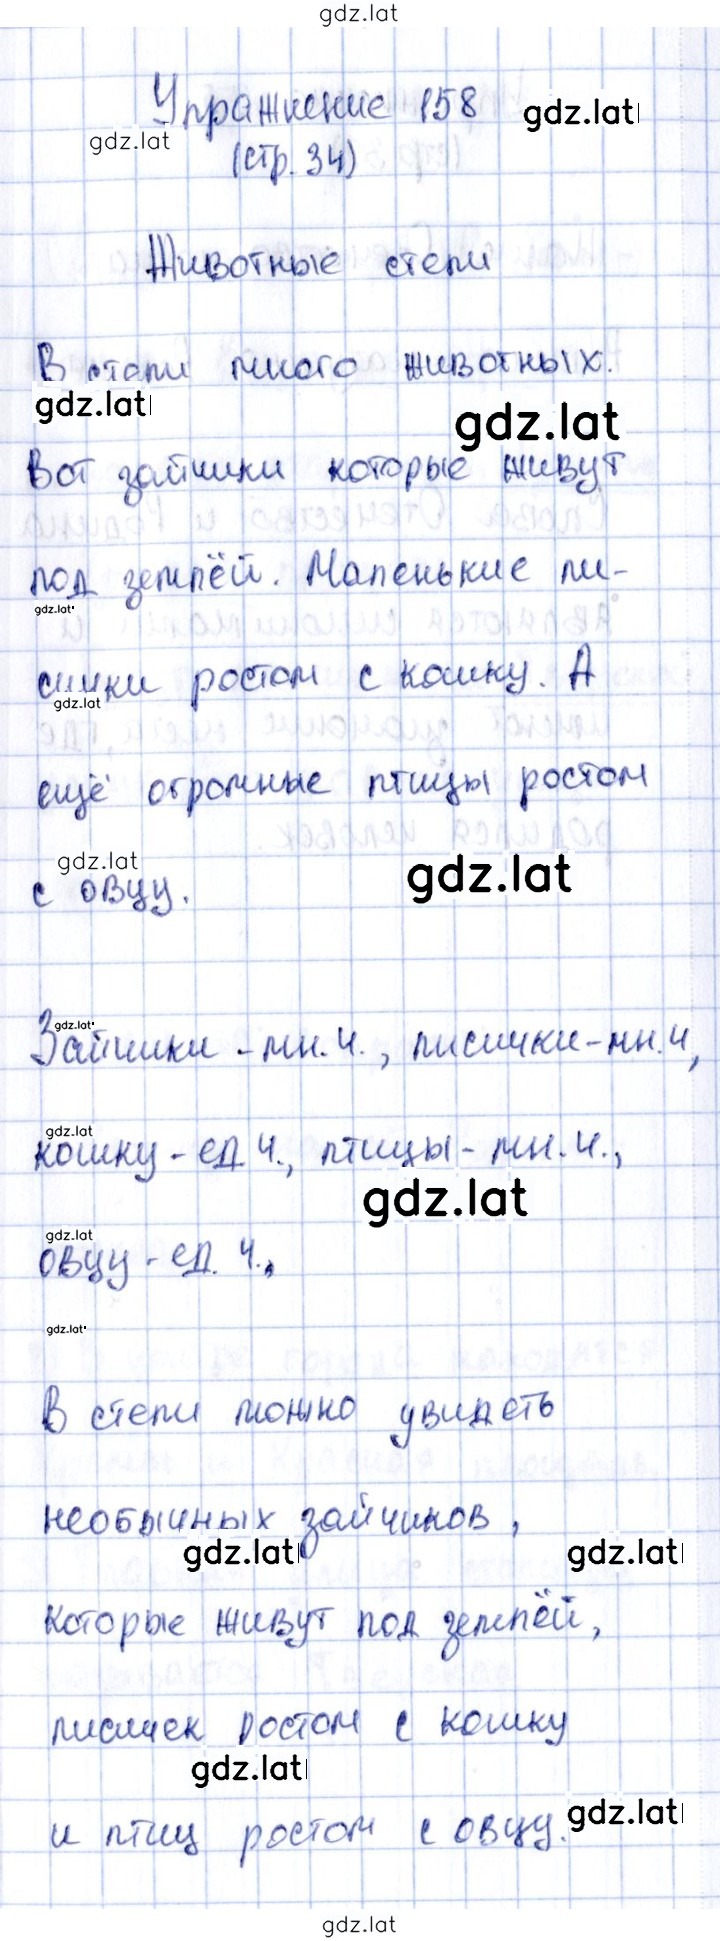 gdz.lat
Упражнение 158 gdz.lat
gdz.lat
(стр. 34)
Животные степи
В степи много животных.
gdz.lat
gdz.lat
Вот зайчики которые живут
под землёй. Маленькие ли-
gdz.lat
сички ростом с кошку. А
gdz.lat
ещё огромные птицы ростом
gdz.lat
gdz.lat
с овцу.
gdz.lat
Зайчики - мн. ч., лисички - мн. ч,
gdz.lat
кошку - ед ч., птицы - мн. ч.,
gdz.lat
gdz.lat
овцу - ед. ч.,
gdz.lat
В степи можно увидеть
необычных зайчиков,
gdz.lat gdz.lat
которые живут под землёй,
лисичек ростом с кошку
gdz.lat
gdz.lat
и птиц ростом с овцу.
gdz.lat